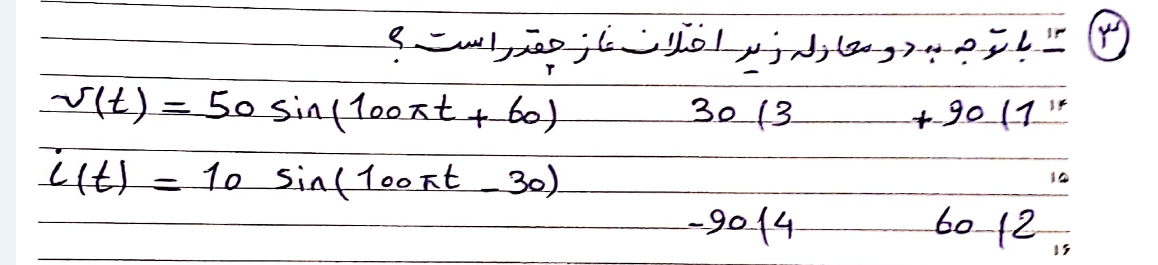 ۳ ۱۳- با توجه به دو معادله زیر اختلاف فاز چقدر است ؟
v(t) = 50 sin(100πt + 60) 30 (3 +90 (1 ۱۴
i(t) = 10 sin(100πt - 30) ۱۵
-90 (4 60 (2
۱۶